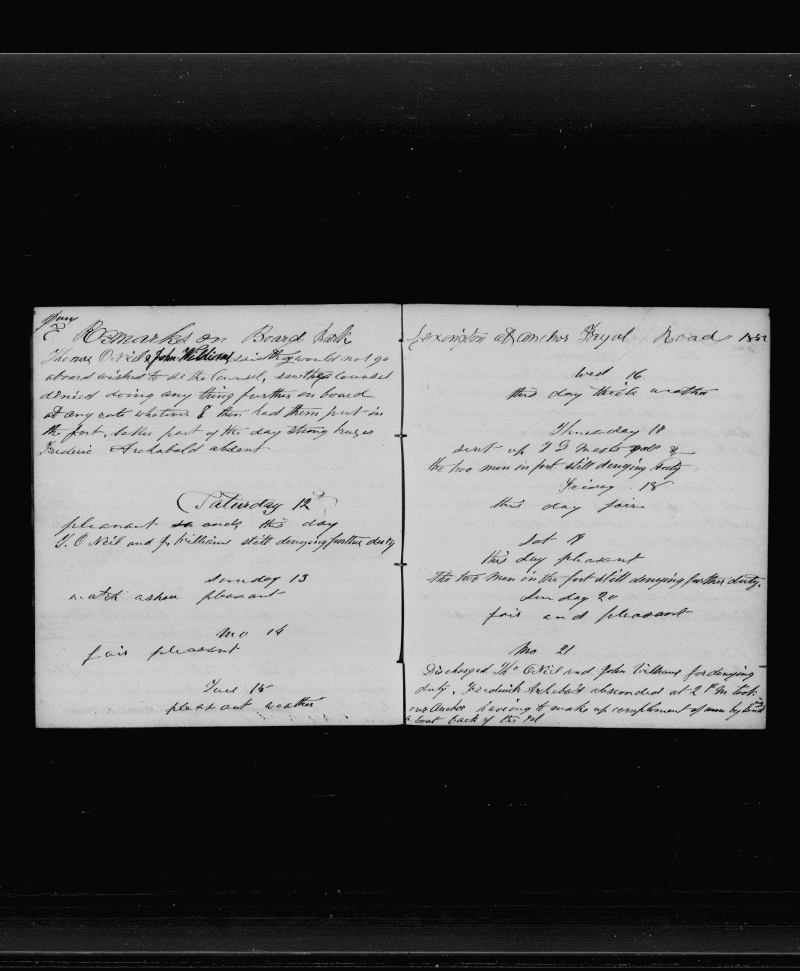 Remarks on Board Bark
Thomas O Neil & John Williams said they would not go
aboard wished to se the Counsel, saw the Counsel
denied doing any thing further on board
at any rate whatever & then had them put in
the fort, latter part of the day strong
Frederic Archabald absent
Saturday 12th
pleasant so ends this day
T. O Neil and J. Williams still denying further duty
sonnday 13
watch ashou pleasant
Mo 14
fair pleasant
Tues 15
pleasant weather
Lexington at anchor Fayal Roads 1852
Wed 16
this day thick weather
Thuesday 18
sent up
the two men in fort still denying duty
Friday 18
this day fair
Sat 19
this day pleasant
the two men in the fort still denying further duty.
Sunday 20
fair and pleasant
Mo 21
Discharged Tho O Neil and John Williams for denying
duty. Frederick Archabald absconded at 2 P M took
our Anchor haveing to make up compliment of men by
a boat back of the